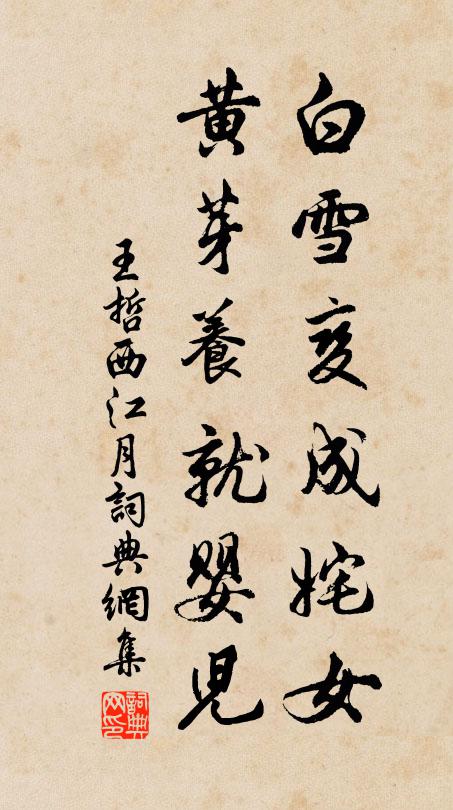 白雪变成姹女
黃芽養就嬰児
王哲西江月詞典網集
詞典网印